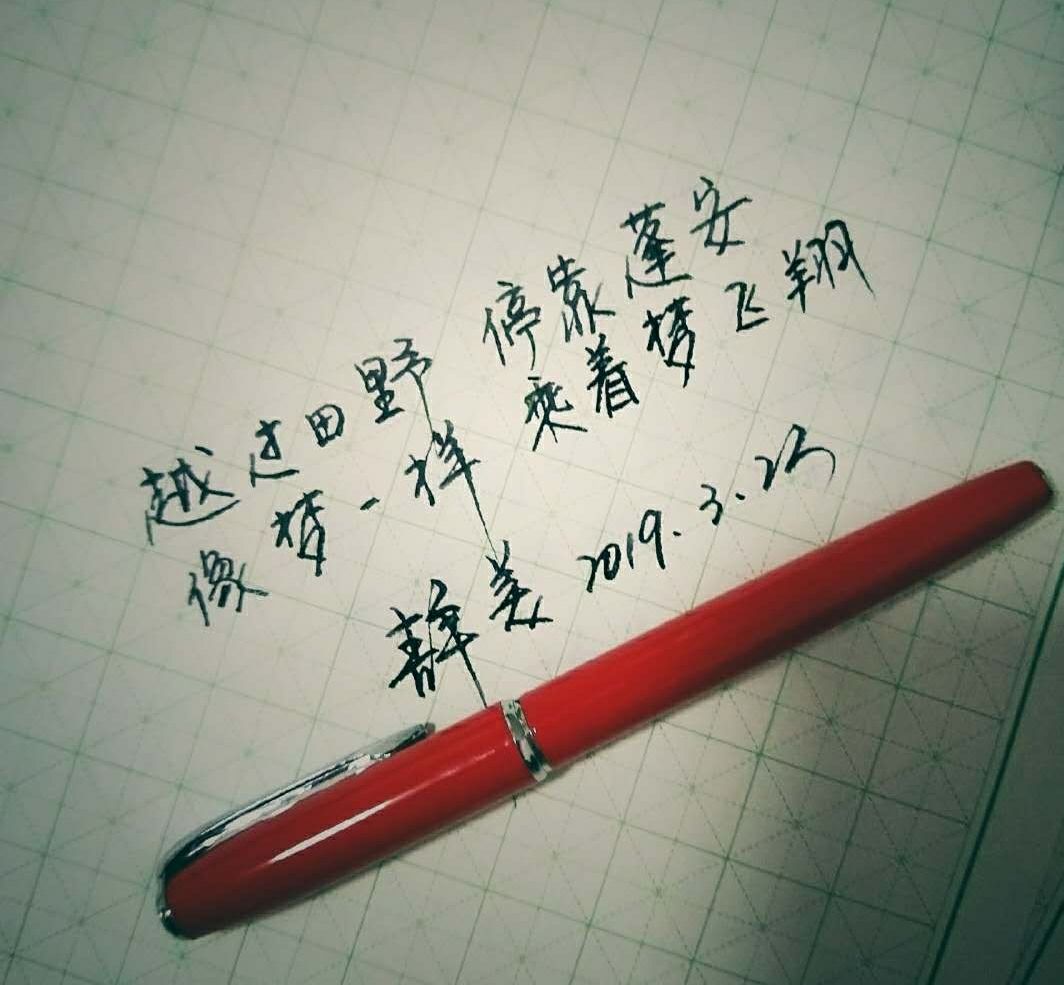 越过田野 停靠蓬安
像梦一样 乘着梦飞翔
静美 2019.3.23